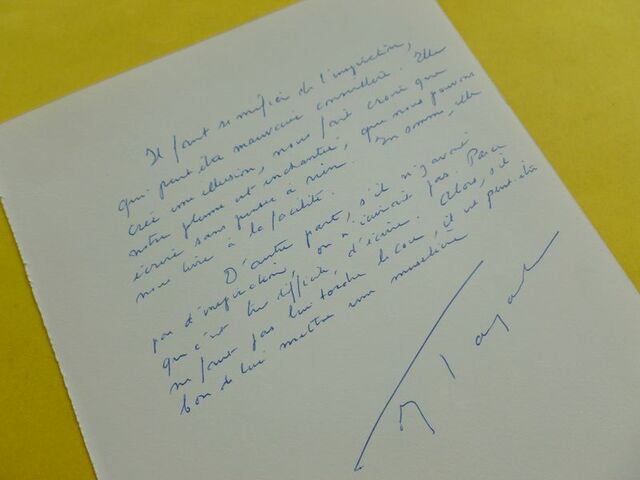 Il faut se méfier de l'inspiration,
qui peut être mauvaise conseillère. Elle
crée une illusion, nous fait croire que
notre plume est enchantée, que nous pouvons
écrire sans penser à rien. En somme, elle
nous livre à la facilité.
D'autre part, s'il n'y avait
pas d'inspiration, on n'écrirait pas. Parce
que c'est très difficile, d'écrire. Alors, s'il
ne faut pas lui tordre le cou, il est peut-être
bon de lui mettre une muselière